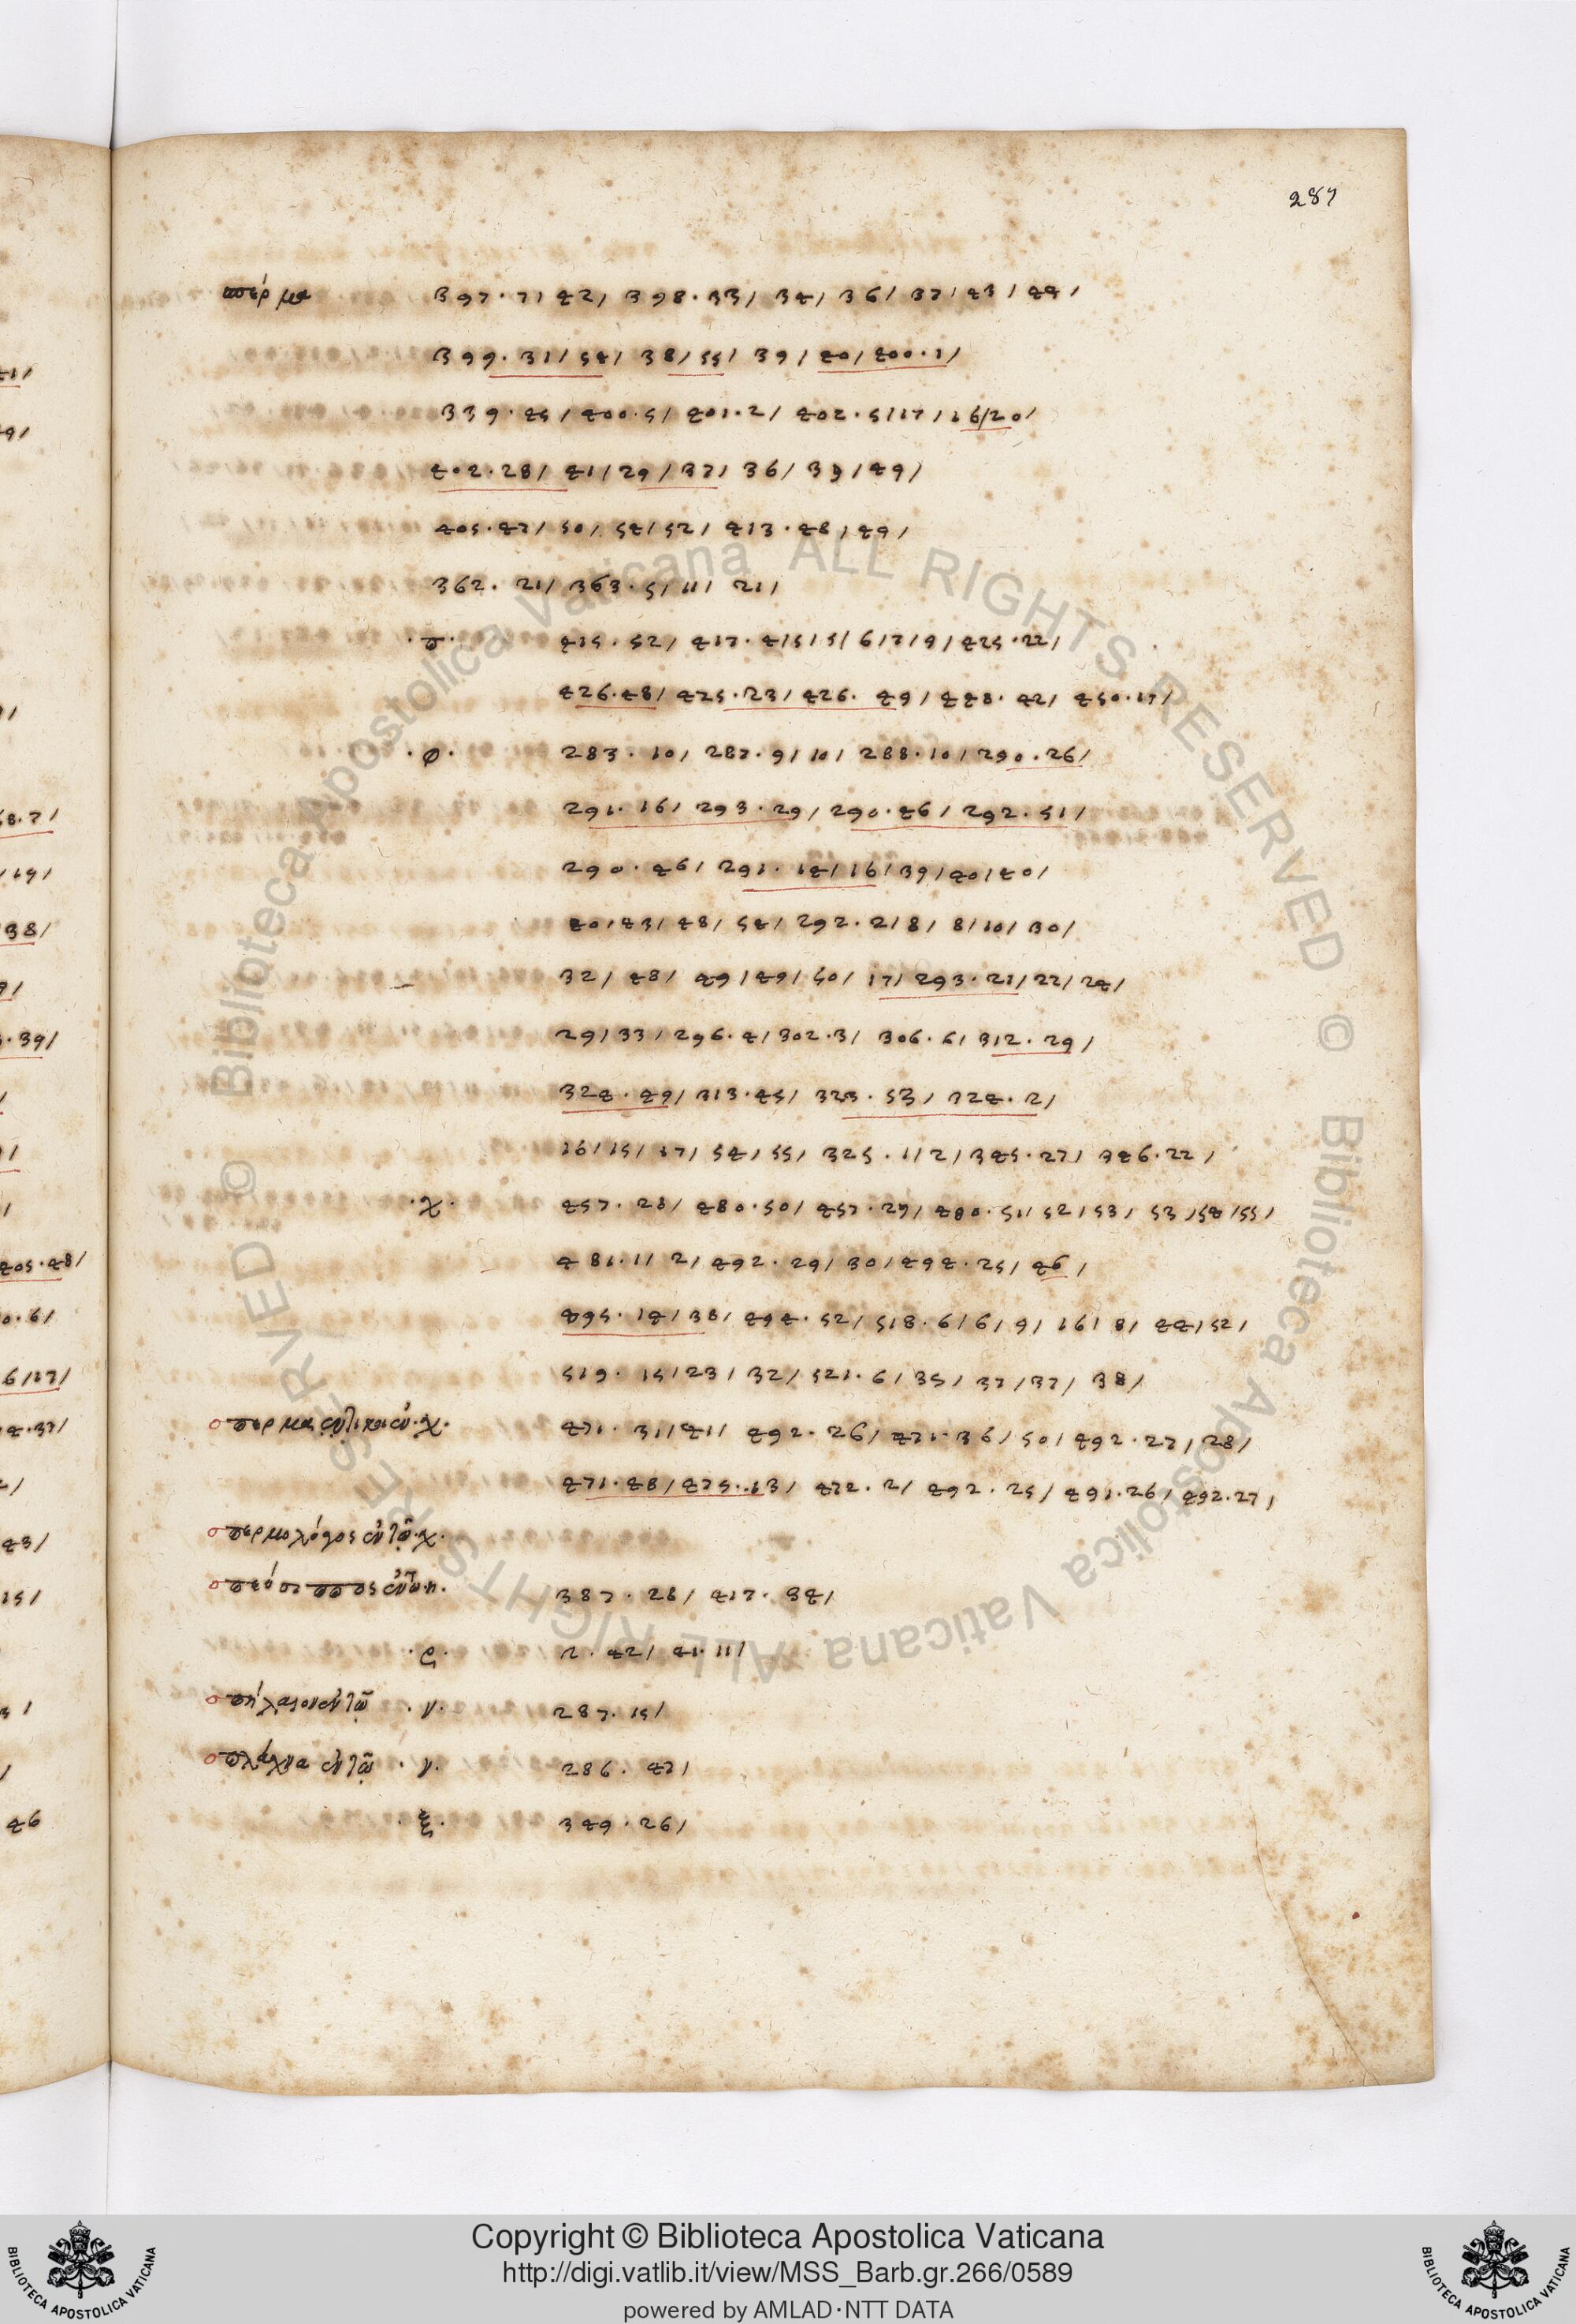 287
σπέρμα 397·7/ 42/ 398·33/ 34/ 36/ 37/ 43/ 44/
399·31/ 54/ 38/ 55/ 39/ 40/ 400·1/
339·45/ 400·5/ 401·2/ 402·5/17/16/20/
402·28/ 41/29/37/ 36/ 39/49/
405·47/ 50/ 54/52/ 413·48/49/
362·21/ 363·5/ 11/ 21/
·π· 415·52/ 417·4/5/5/6/7/9/425·22/
426·48/ 425·23/ 426·49/ 448·42/ 450·17/
·φ· 283·10/ 287·9/10/ 288·10/290·26/
291·16/ 293·29/ 290·46/ 292·51/
290·46/ 291·14/16/39/40/40/
40/43/48/54/292·2/8/ 8/10/30/
32/ 48/ 49/49/50/ 17/293·21/22/24/
29/33/296·4/302·3/ 306·6/312·29/
324·49/ 313·45/ 323·53/ 324·2/
16/15/17/54/55/ 325·1/2/345·27/ 346·22/
·χ· 457·28/ 480·50/ 457·29/ 480·51/52/53/ 53/54/55/
481·1/ 2/ 492·29/30/494·25/46/
495·14/38/ 494·52/518·6/6/9/16/8/ 44/52/
519·15/23/32/521·6/35/37/37/ 38/
471·31/41/ 492·26/ 471·36/50/492·27/28/
471·48/475·13/ 472·2/ 492·25/491·26/492·27/
σπερμολόγος ἐν τῷ·χ·
387·28/ 417·34/
·ϛ· 2·42/ 41·11/
σπήλαιον ἐν τῷ ·ν· 287·15/
σπλάχνα ἐν τῷ ·ν· 286·47/
·ξ· 349·26/
Copyright © Biblioteca Apostolica Vaticana
http://digi.vatlib.it/view/MSS_Barb.gr.266/0589
powered by AMLAD·NTT DATA